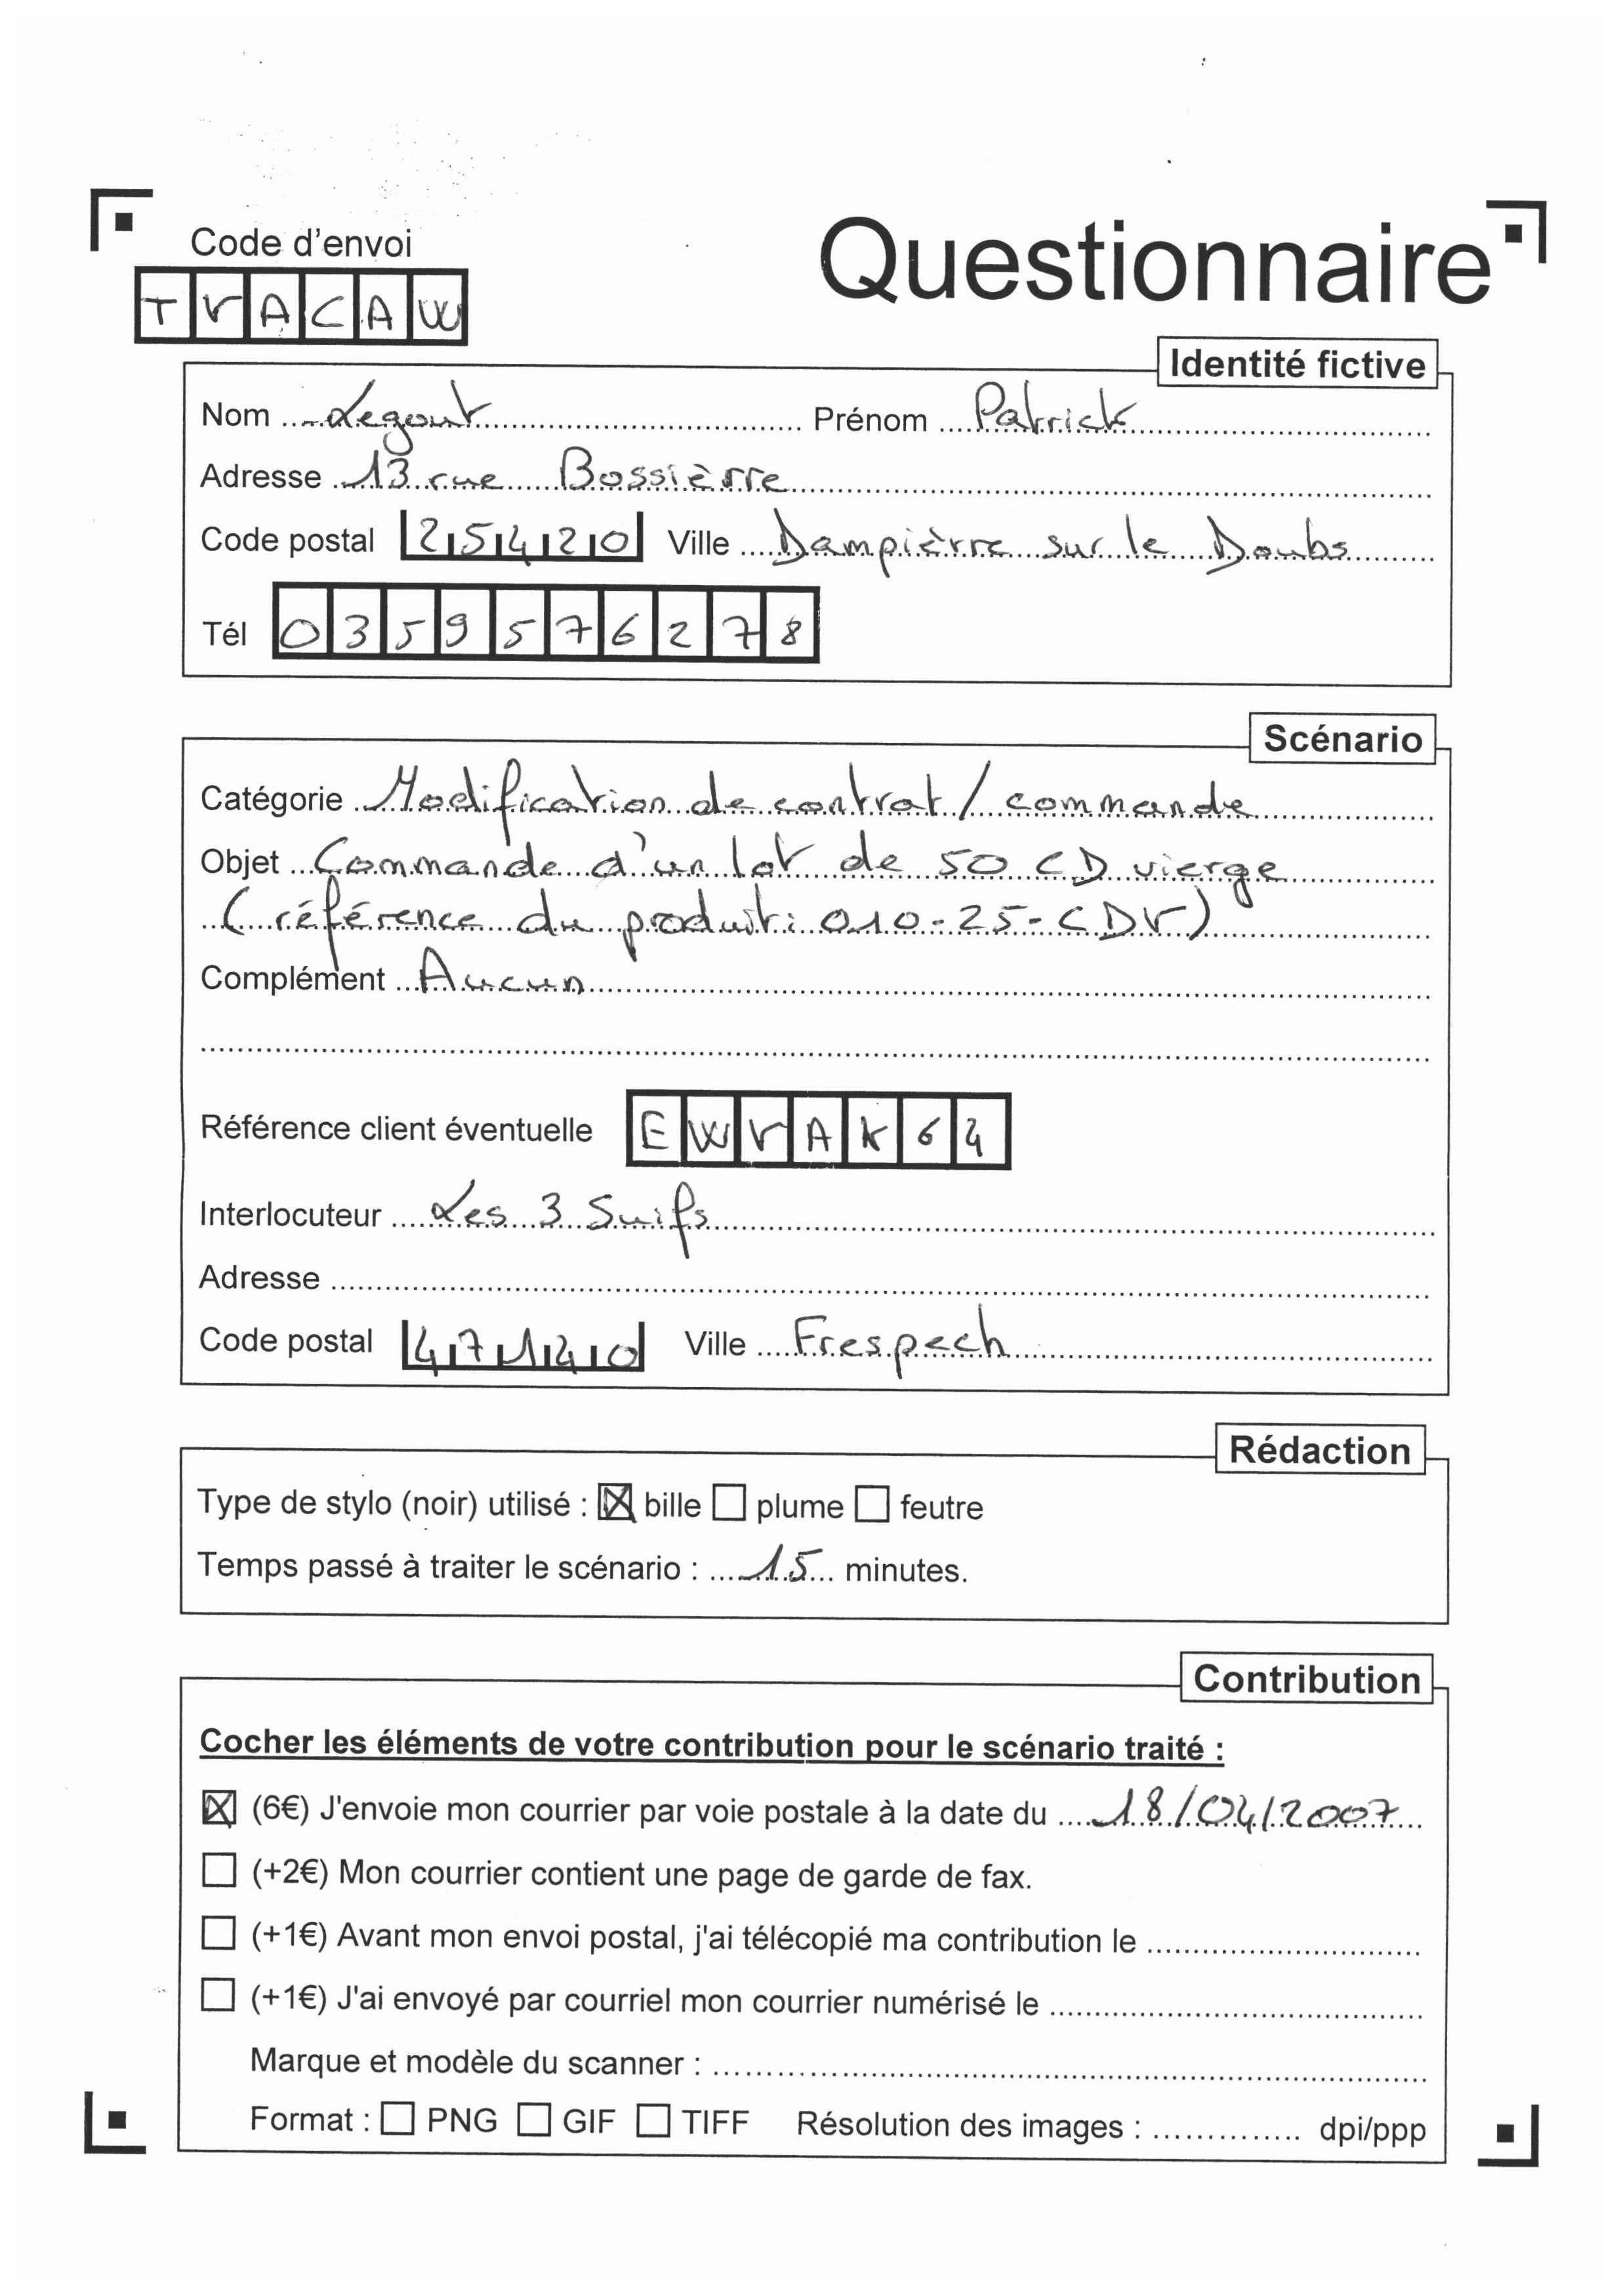 Code d'envoi
Questionnaire
TVACAW
Identité fictive
Nom Legout Prénom Patrick
Adresse 13 rue Bossièrre
Code postal 25420 Ville Dampièrre sur le Doubs
Tél 0359576278
Scénario
Catégorie Modification de contrat / commande
Objet Commande d'un lot de 50 CD vierge
(référence du produit : 010-25-CDV)
Complément Aucun
Référence client éventuelle EWVAK64
Interlocuteur Les 3 Suifs
Adresse
Code postal 47140 Ville Frespech
Rédaction
Type de stylo (noir) utilisé : ☒ bille ☐ plume ☐ feutre
Temps passé à traiter le scénario : 15 minutes.
Contribution
Cocher les éléments de votre contribution pour le scénario traité :
☒ (6€) J'envoie mon courrier par voie postale à la date du 18/04/2007
☐ (+2€) Mon courrier contient une page de garde de fax.
☐ (+1€) Avant mon envoi postal, j'ai télécopié ma contribution le
☐ (+1€) J'ai envoyé par courriel mon courrier numérisé le
Marque et modèle du scanner :
Format : ☐ PNG ☐ GIF ☐ TIFF Résolution des images : dpi/ppp